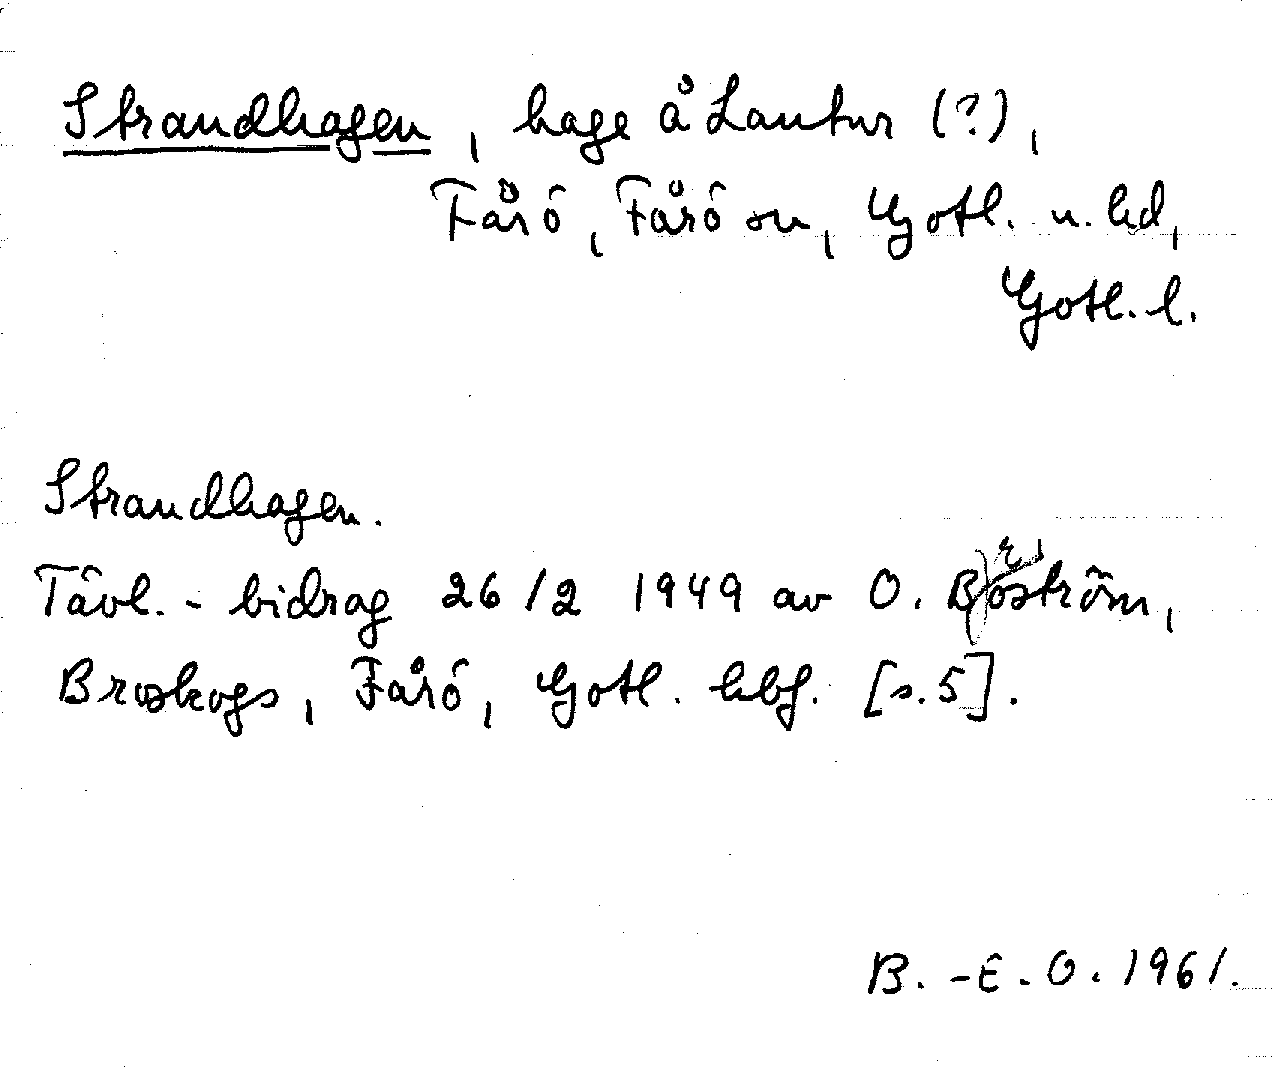 Strandhagen, hage å Lautur (?),
Fårö, Fårö sn, Gotl. n. hd,
Gotl. l.
Strandhagen.
Tävl.-bidrag 26/2 1949 av O. Broström,
Broskogs, Fårö, Gotl. hbf. [s. 5].
B.-E. O. 1961.